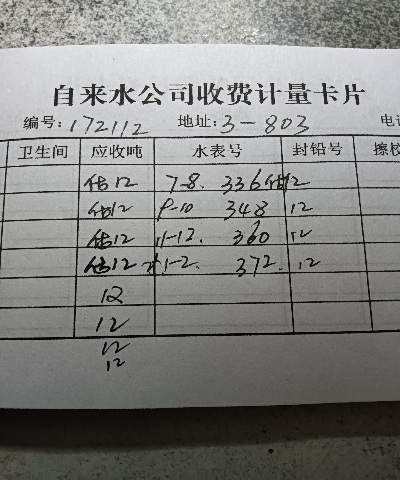 自来水公司收费计量卡片
编号: 172112 地址: 3-803 电话
卫生间 应收吨 水表号 封铅号 擦校
估12 7-8. 336 12
估12 9-10 348 12
估12 11-12. 360 12
估12 1-2. 372. 12
12
12
12
12